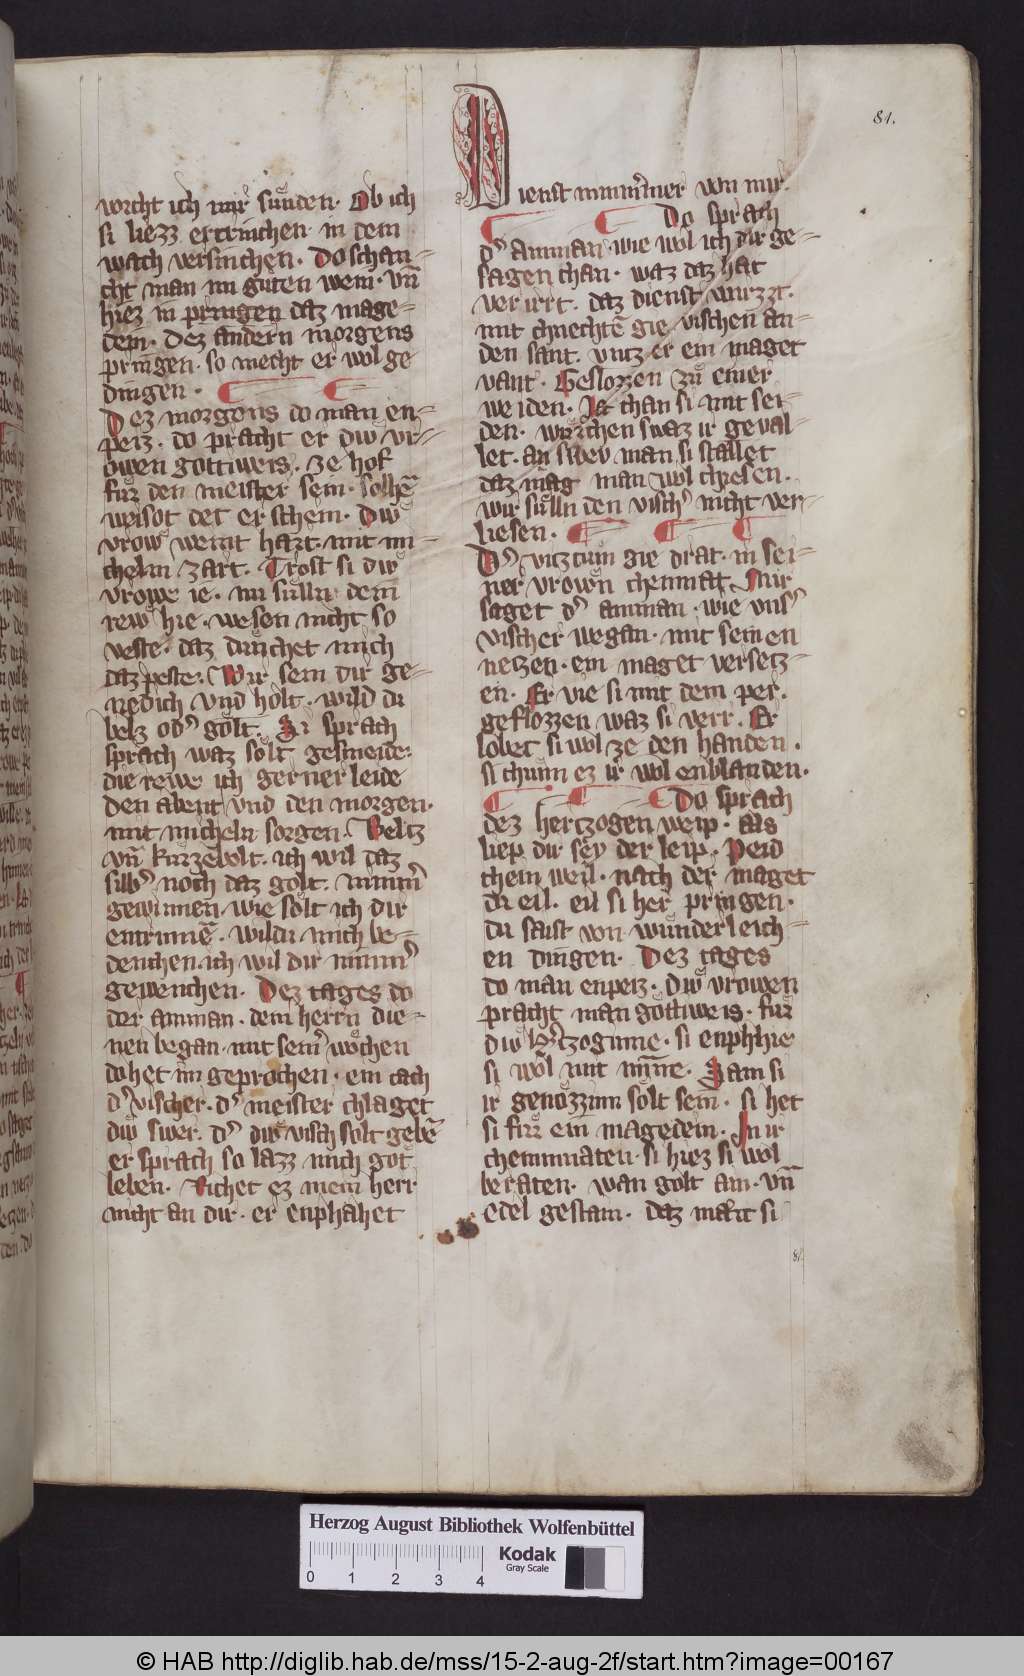 81.
vorcht ich mir sunden. Ob ich
si liezz ertrinchen in dem
wach versinchen. Do schan-
cht man im guten wein. vn̄
hiez in pringen daz mage-
dein. Dez andern morgens
pringen. so mecht er wol ge
dingen.
Dez morgens do man en-
peiz. do pracht er diw vr-
owen gottiweis. ze hof
fuͤr den meister sein. solhē
weisot det er schein. Diw
vrow weint hart. mit mi-
cheln zart. Trost si diw
vrowe ie. nu suͤlln dein
rew hie. wesen nicht so
veste. daz dunchet mich
daz peste. Wir sein dir ge-
nedich vnd holt. wild du
belz odˢ golt. Si sprach
sprach waz solt gesmeide.
die rewe ich gerner leide
den abent vnd den morgen.
mit micheln sorgen. Beltz
vn̄ kurzebolt. ich wil daz
silbˢ noch daz golt. nimmˢ
gewinnen. wie solt ich dir
entrinnē. wildu mich be-
denchen. ich wil dir nimmˢ
gewenchen. Dez tages do
der amman. dem herrn die-
nen began. mit seinˢ wochen
do het im geprochen. ein tach
dˢ vischer. dˢ meister chlaget
diw swer. dˢ diw visch solt gebē
er sprach so lazz mich got
leben. Richet ez mein herr
nicht an dir. er enphahet
Dienst nimmˢmer von mir.
Do sprach
dˢ amman. wie wol ich dir ge-
sagen chan. waz daz hat
verirrt. daz dienst wirzzt.
mit chnechtē gie vischen an-
den sant. vntz er ein maget
vant. Geslozzen zuͤ einer
weiden. Ia chan si mit sei-
den. wuͤrchen swaz ir geval-
let. an swev man si stallet
daz mag man wol chiesen.
wir suͤlln den vischˢ nicht ver-
liesen.
Dˢ vitztum gie drat. in sei-
ner vrowen chemnat. Mir
saget dˢ amman. wie vnsˢ
vischer wegan. mit seinen
netzen. ein maget versetz-
en. Er vie si mit dem per.
geflozzen waz si verr. Er
lobet si wol ze den handen.
si chunn ez ir wol enblanden.
Do sprach
dez hertzogen weip. Als
liep dir sey der leip. Peid
chein weil. nach der maget
du eil. eil si her pringen.
du saist von wunderleich-
en dingen. Dez tages
do man enpeiz. diw vrowen
pracht man gottiweis. fuͤr
diw hˢtzoginne. si enphhie
si wol mit minne. Sam si
ir genozzinn solt sein. si het
si fuͤr ein magedein. In ir
cheminnaten. si hiez si wol
beraten. wan golt am. vn̄
edel gestain. daz mait si
81.
Herzog August Bibliothek Wolfenbüttel
Kodak
Gray Scale
0 1 2 3 4
© HAB http://diglib.hab.de/mss/15-2-aug-2f/start.htm?image=00167